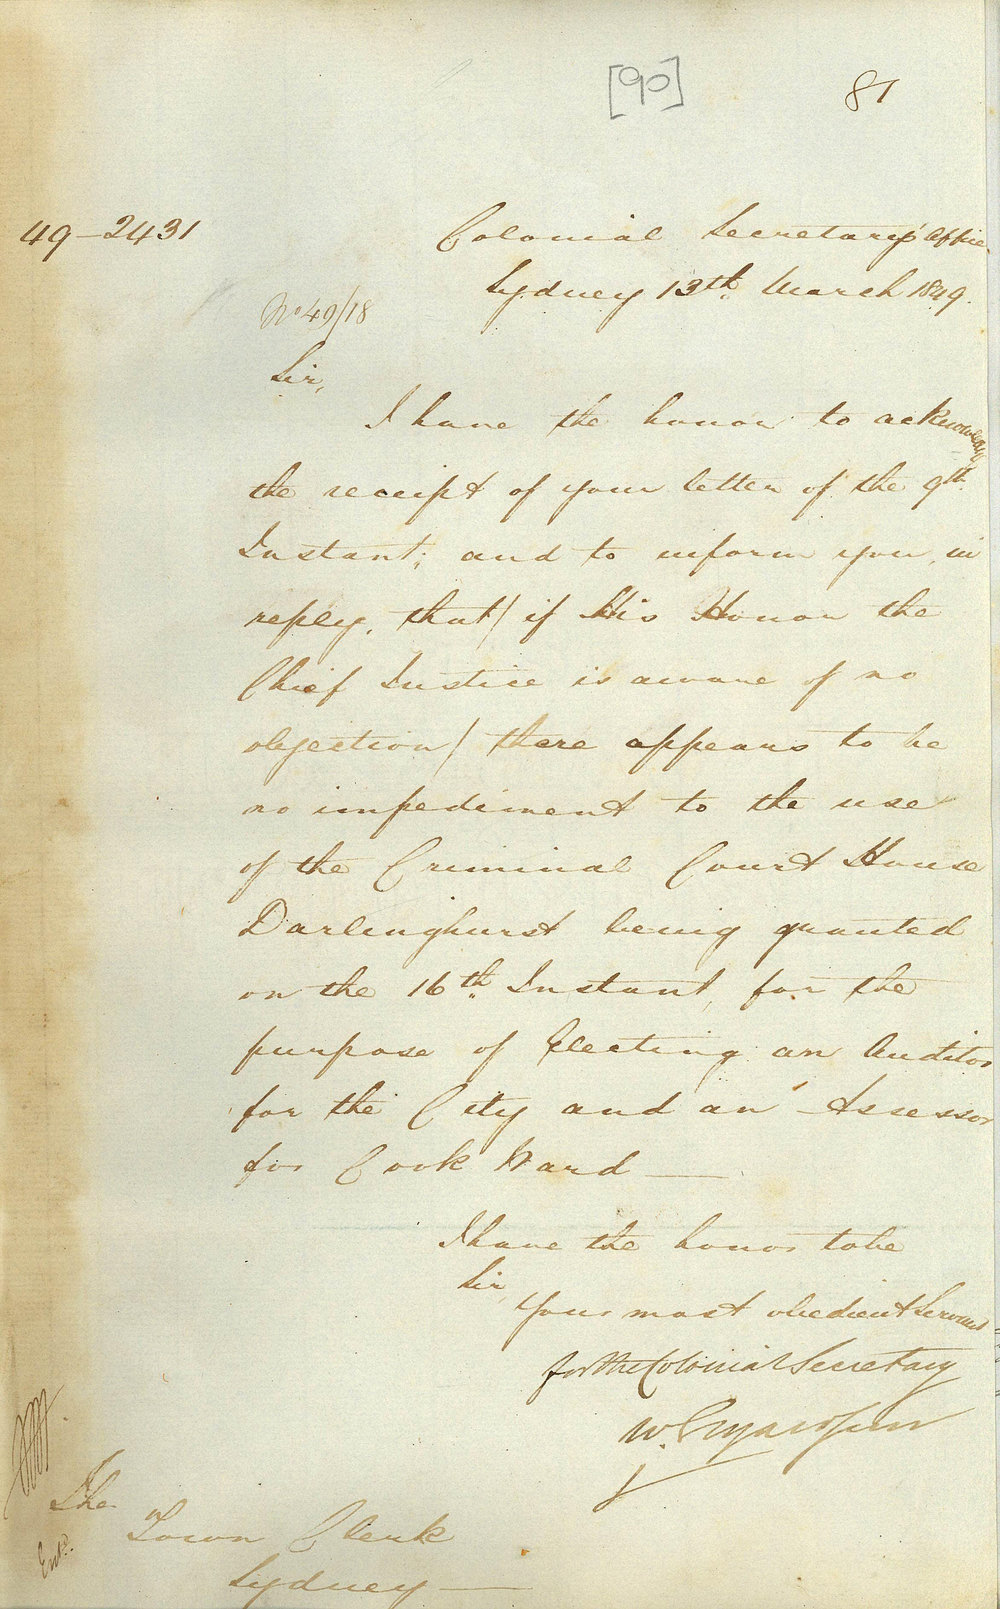 [90]
81
49-2431
Colonial Secretary's Office
Sydney 13th March 1849.
No 49/18
Sir,
I have the honor to acknowledge
the receipt of your letter of the 9th
Instant; and to inform you, in
reply, that / if His Honor the
Chief Justice is aware of no
objection / there appears to be
no impediment to the use
of the Criminal Court House
Darlinghurst being granted
on the 16th Instant, for the
purpose of Electing an Auditor
for the City and an Assessor
for Cook Ward —
I have the honor to be
Sir,
Your most obedient Servant
for the Colonial Secretary
W.
The
Town Clerk
Sydney —
Entd.